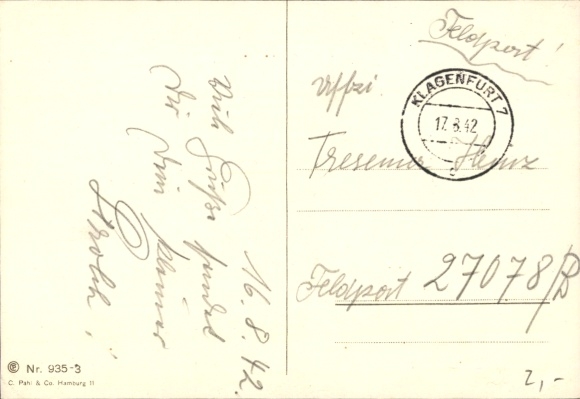 16.8.42.
Viele Grüße sendet
Dir Dein kleiner
Strolch!
Feldpost!
Uffzi.
KLAGENFURT 7
17.8.42
Tresemer Heinz
Feldpost 27078/B
Nr. 935-3
C. Pahl & Co. Hamburg 11
2,-